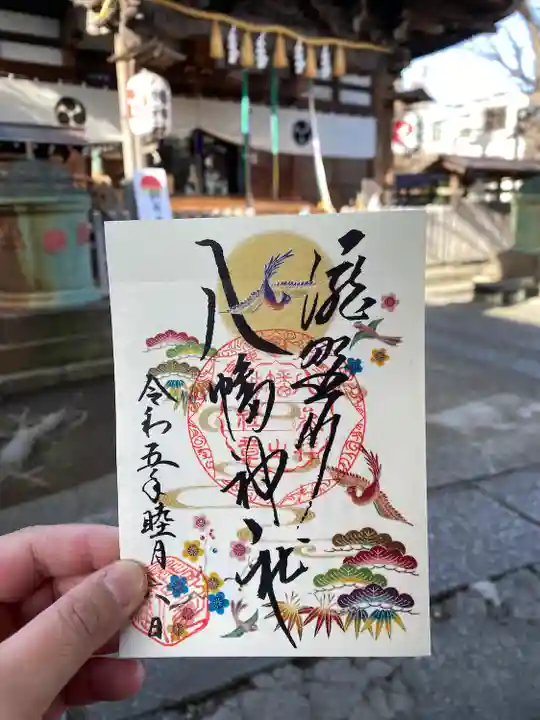 瀧野川
八幡神社
令和五年睦月八日